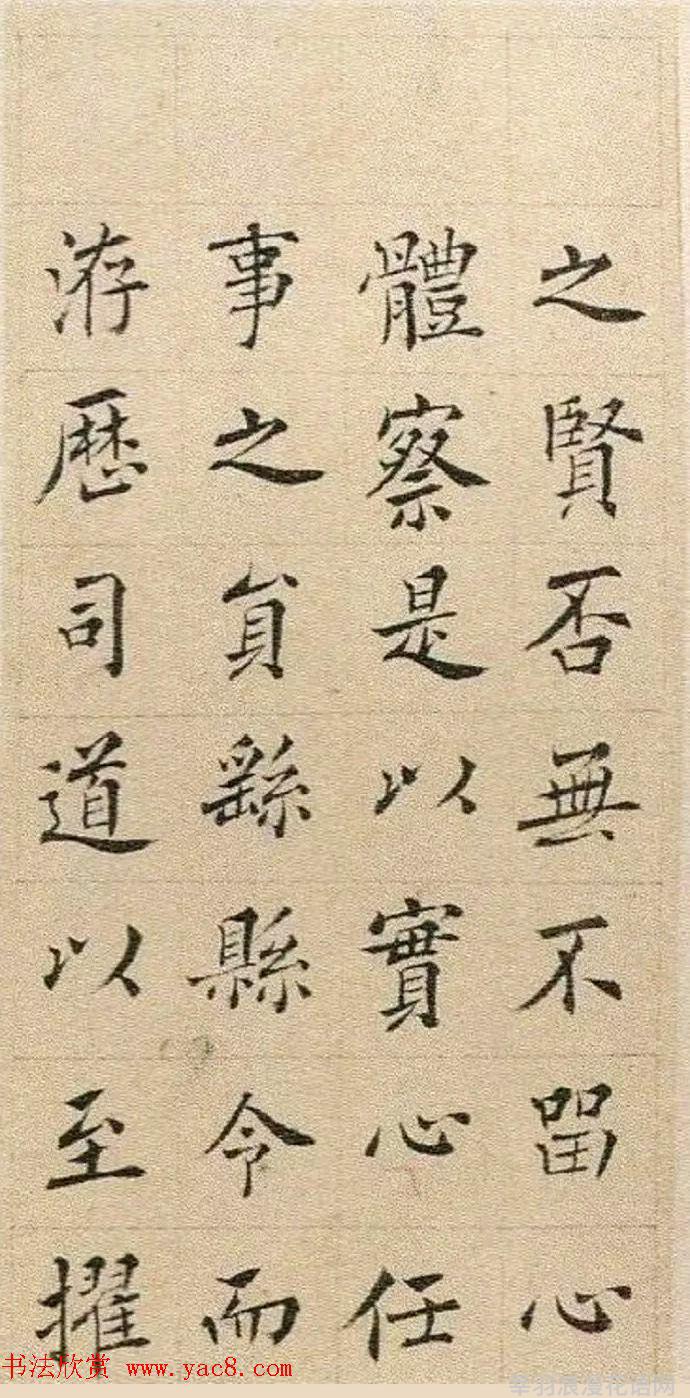 之賢否無不留心
體察是以實心任
事之員繇縣令而
洊歷司道以至擢
书法欣赏 www.yac8.com